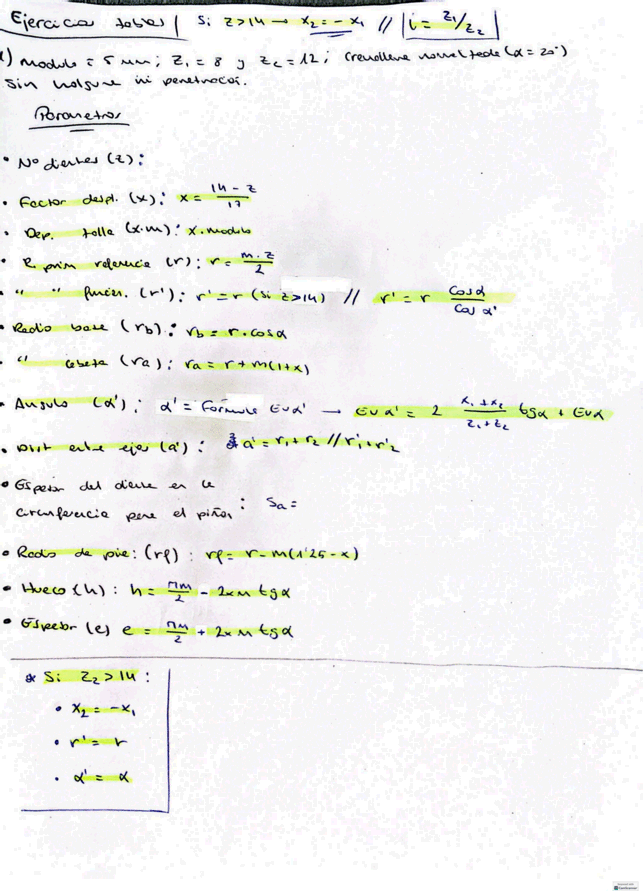 Ejercicio tablas / Si z>14 → x₂ = -x₁ // |i = z₁/z₂|
1) modulo = 5 mm; z₁ = 8 y z₂ = 12; cremallera normalizada (α = 20°)
Sin holgura ni penetración.
Parametros
• Nº dientes (z):
• Factor despl. (x): x = (14 - z)/17
• Dep. talla (x·m): x·modulo
• R. prim referencia (r): r = (m·z)/2
• " " funcion. (r'): r' = r (si z>14) // r' = r (cos α)/(cos α')
• Radio base (rb): rb = r·cosα
• " cabeza (ra): ra = r + m(1+x)
• Angulo (α'): α' = Formula Evα' → Evα' = 2 (x₁+x₂)/(z₁+z₂) tgα + Evα
• Dist entre ejes (a'): a' = r₁+r₂ // r'₁+r'₂
• Espesor del diente en la
circunferencia para el piñon : Sa =
• Radio de pie: (rf) : rf = r - m(1'25 - x)
• Hueco (h) : h = πm/2 - 2xm tgα
• Espesor (e) e = πm/2 + 2xm tgα
* Si z₂>14 :
• x₂ = -x₁
• r' = r
• α' = α